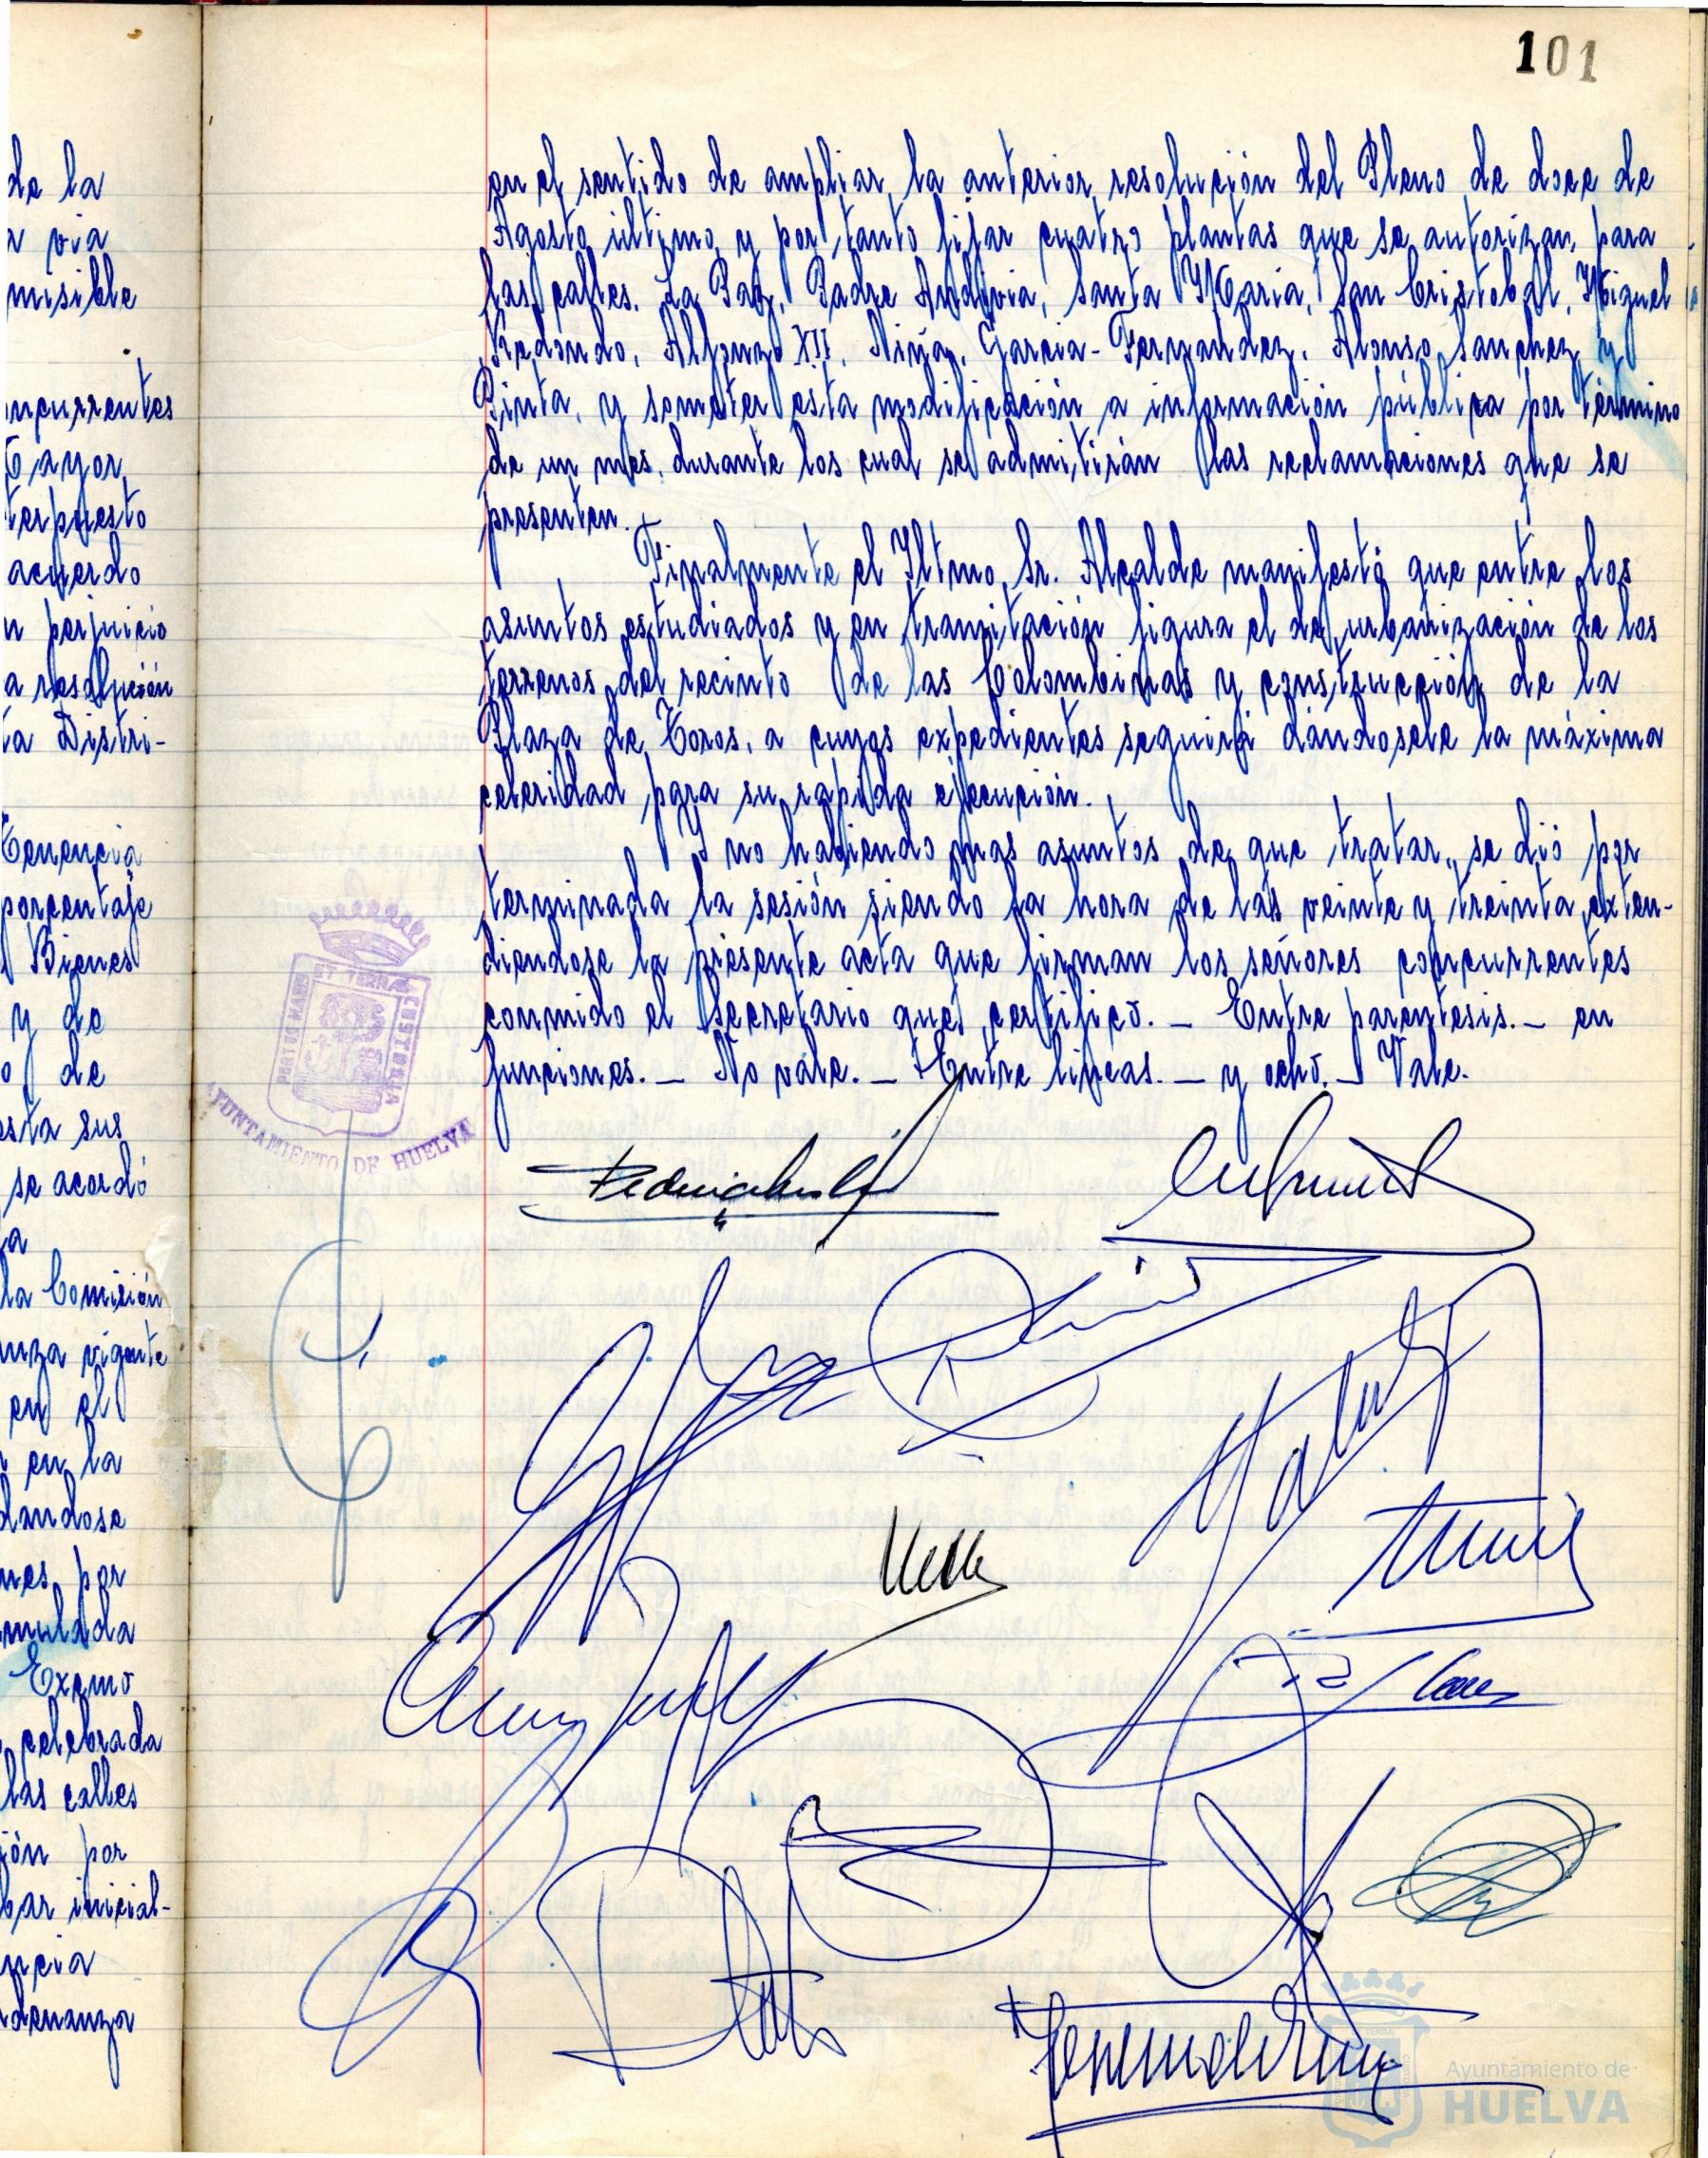 101
de la
a via
misible
ncurrentes
Cayor
terpuesto
acuerdo
n perjuicio
a resolución
ta Distri-
Tenencia
porcentaje
Bienes
y de
o de
esta sus
se acordó
a
la Comisión
nza vigente
en el
en la
dandose
nes por
mulada
Excmo
celebrada
las calles
ión por
bar inicial-
ncia
denanza
en el sentido de ampliar la anterior resolución del Pleno de doce de
Agosto último y por tanto fijar cuatro plantas que se autorizan para
las calles. La Paz, Padre Andivia, Santa Maria, San Cristobal, Miguel
Redondo, Alfonzo XII, Niña, Garcia-Fernandez, Alonso Sanchez y
Pinta, y someter esta modificación a información pública por término
de un mes, durante los cual se admitirán las reclamaciones que se
presenten.
Finalmente el Iltmo, Sr. Alcalde manifestó que entre los
asuntos estudiados y en tramitación figura el de urbanización de los
terrenos del recinto de las Colombinas y construcción de la
Plaza de Toros, a cuyos expedientes seguirá dándosele la máxima
celeridad para su rápida ejecución.
Y no habiendo mas asuntos de que tratar, se dió por
terminada la sesión siendo la hora de las veinte y treinta, exten-
diendose la presente acta que firman los señores concurrentes
conmido el Secretario que certifico. - Entre parentesis. - en
funciones. - No vale. - Entre lineas. - y ocho. - Vale.
PORTUS MARIS ET TERRAE CUSTODIA
AYUNTAMIENTO DE HUELVA
Ayuntamiento de
HUELVA